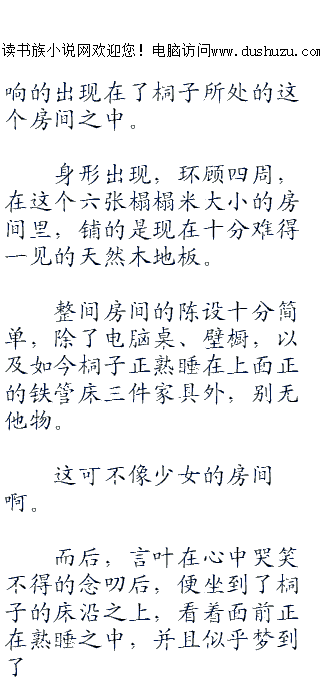 读书族小说网欢迎您！电脑访问www.dushuzu.com
响的出现在了桐子所处的这
个房间之中。
身形出现，环顾四周，
在这个六张榻榻米大小的房
间里，铺的是现在十分难得
一见的天然木地板。
整间房间的陈设十分简
单，除了电脑桌、壁橱，以
及如今桐子正熟睡在上面正
的铁管床三件家具外，别无
他物。
这可不像少女的房间
啊。
而后，言叶在心中哭笑
不得的念叨后，便坐到了桐
子的床沿之上，看着面前正
在熟睡之中，并且似乎梦到
了